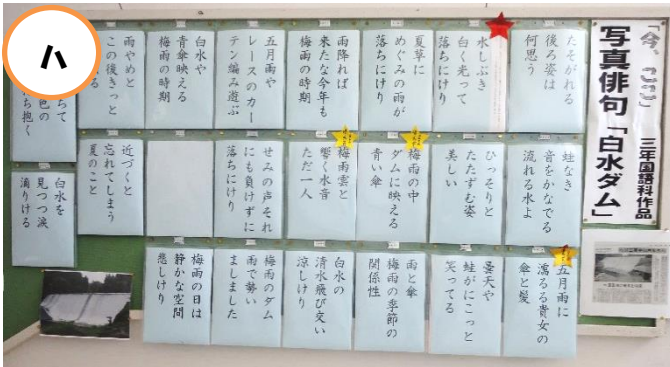 ハ
「今、ここ」
三年国語科作品
写真俳句「白水ダム」
たそがれる
後ろ姿は
何思う
水しぶき
白く光って
落ちにけり
夏草に
めぐみの雨が
落ちにけり
雨降れば
来たな今年も
梅雨の時期
五月雨や
レースのカー
テン編み遊ぶ
白水や
青傘映える
梅雨の時期
雨やめと
この後きっと
る
ちて
色の
ち抱く
蛙なき
音をかなでる
流れる水よ
ひっそりと
たたずむ姿
美しい
梅雨の中
ダムに映える
青い傘
梅雨雲と
響く水音
ただ一人
せみの声それ
にも負けずに
落ちにけり
近づくと
忘れてしまう
夏のこと
白水を
見つつ涙
滴りける
五月雨に
濡るる貴女の
傘と髪
曇天や
蛙がにこっと
笑ってる
雨と傘
梅雨の季節の
関係性
白水の
清水飛び交い
涼しけり
梅雨のダム
雨で勢い
ましました
梅雨の日は
静かな空間
悲しけり